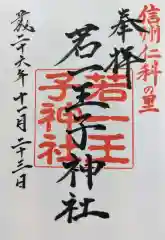 信州仁科の里
奉拝
若一王子神社
若一王子神社
平成二十六年十一月二十三日